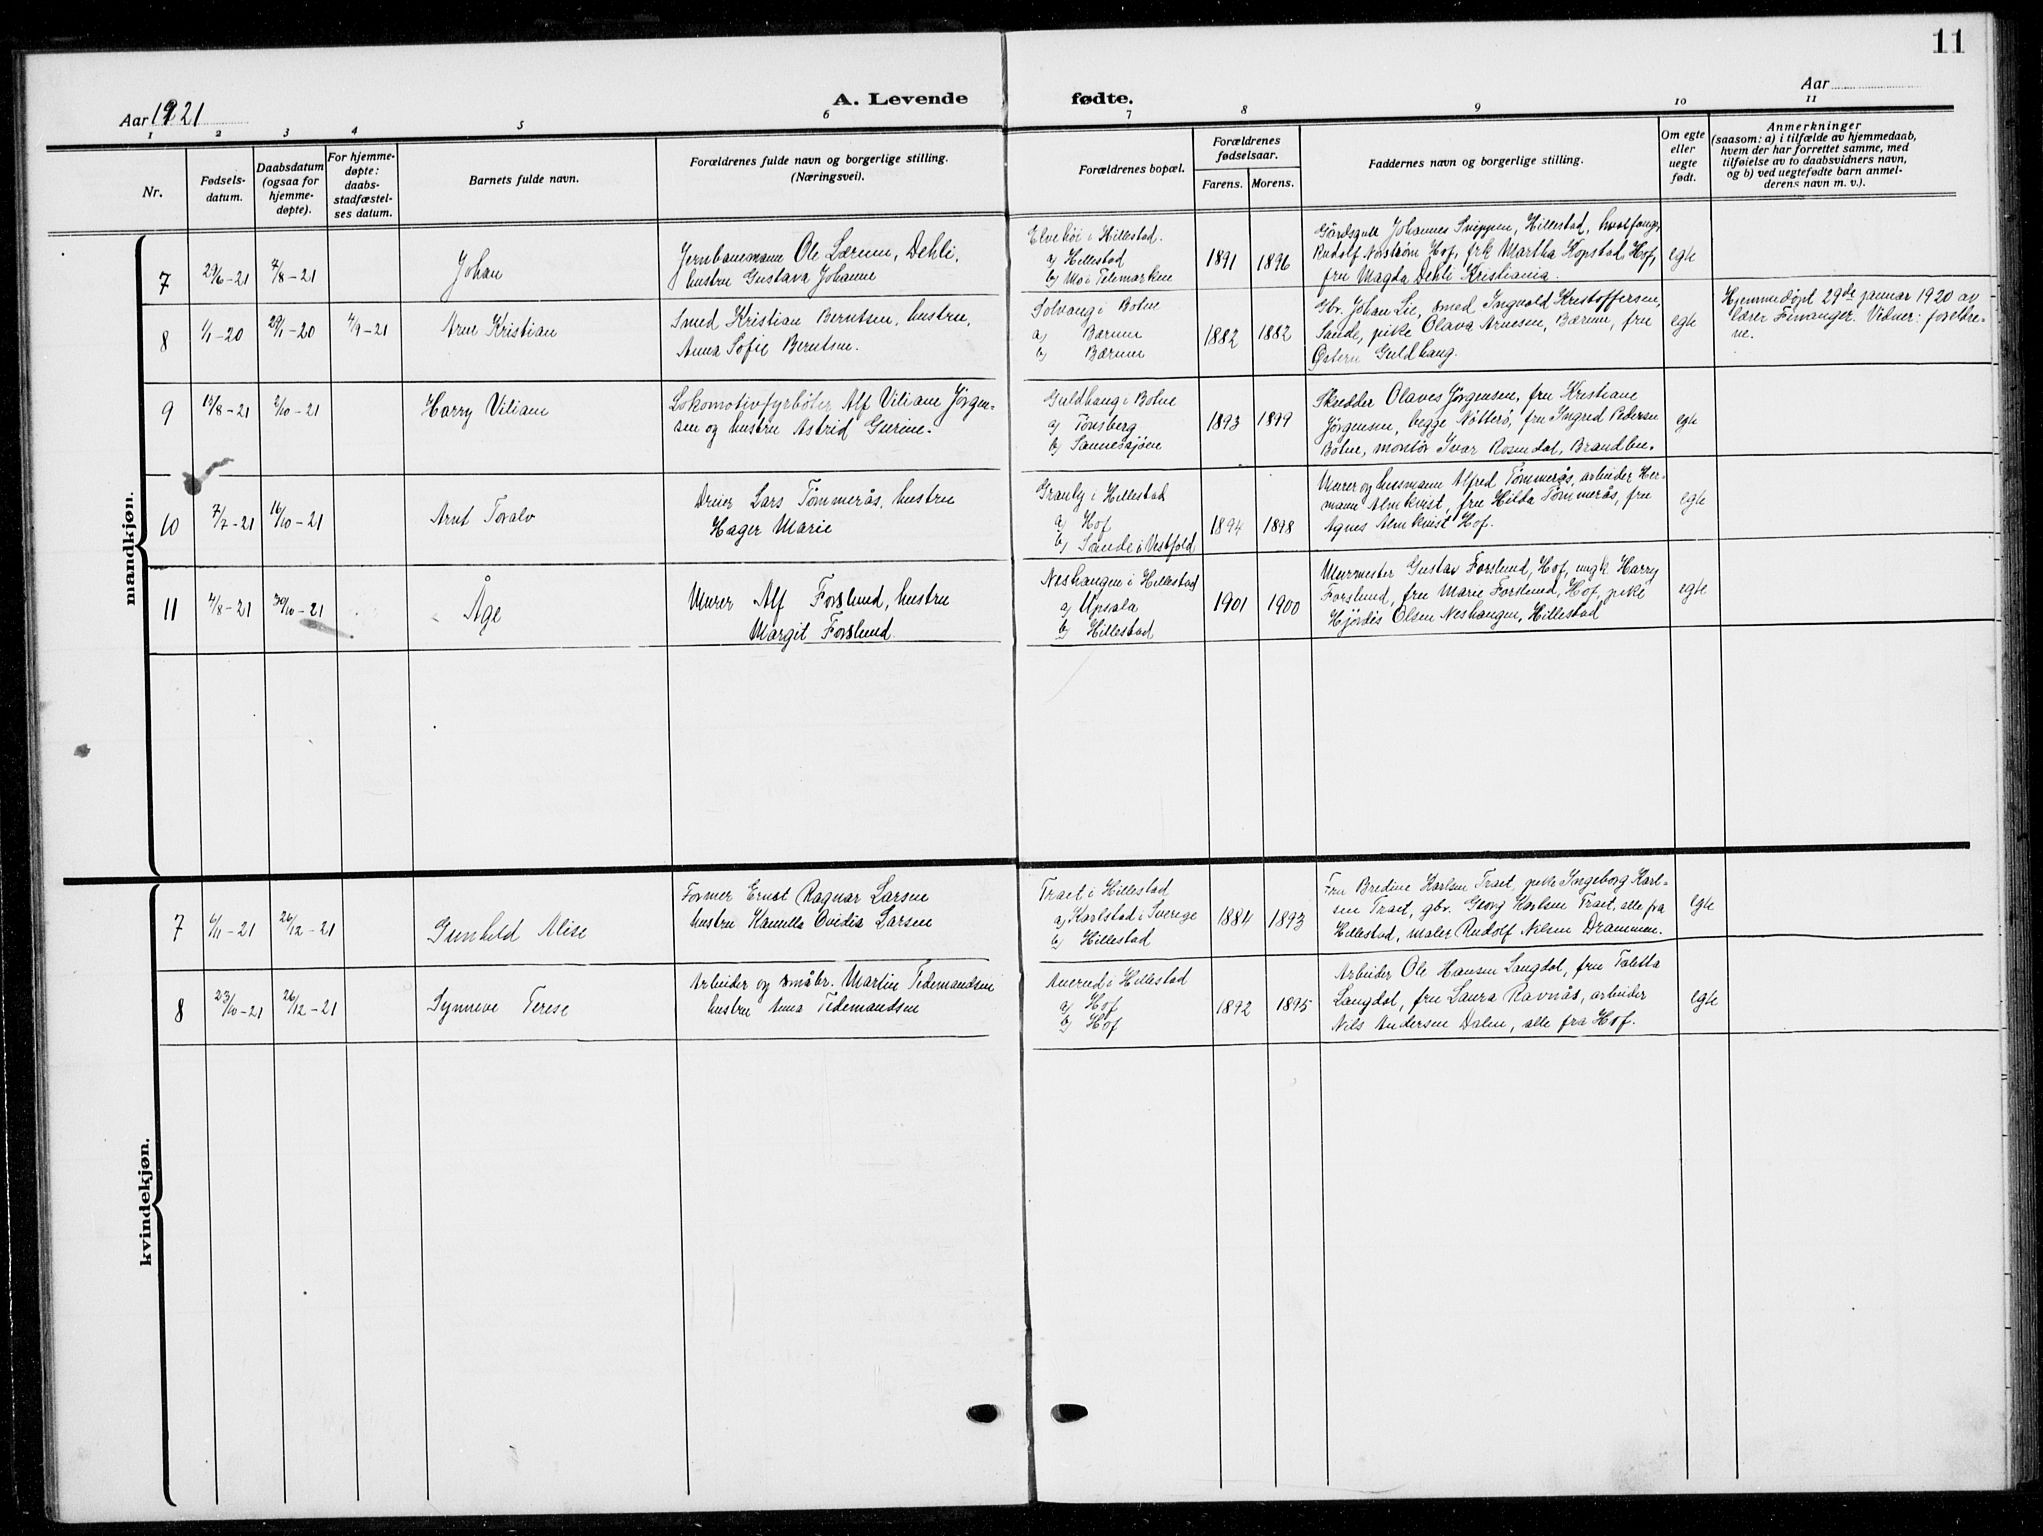 11
Aar 1921
A. Levende fødte.
Aar
1 2 3 4 5 6 7 8 9 10 11
Nr.
Fødsels-
datum.
Daabsdatum
(ogsaa for
hjemme-
døpte).
For hjemme-
døpte:
daabs-
stadfæstel-
ses datum.
Barnets fulde navn.
Forældrenes fulde navn og borgerlige stilling.
(Næringsvei).
Forældrenes bopæl.
Forældrenes
fødselsaar.
Farens. Morens.
Faddernes navn og borgerlige stilling.
Om egte
eller
uegte
født.
Anmerkninger
(saasom: a) i tilfælde av hjemmedaab,
hvem der har forrettet samme, med
tilføielse av to daabsvidners navn,
og b) ved uegtefødte barn anmel-
derens navn m. v.).
mandkjøn.
7 29/6-21 7/8-21 Johan
Jernbanemann Ole Lærum, Dehli,
hustru Gustava Johanne
Elvehöi i Hillestad.
a) Hillestad
b) Mo i Telemarken
1891 1896
Gårdsgutt Johannes Snippen, Hillestad,
Rudolf Norström Hof, frk Martha Kopstad Hof,
fru Magda Dehli Kristiania.
egte
8 1/1-20 29/1-20 4/9-21 Arne Kristian
Smed Kristian Berntsen, hustru,
Anna Sofie Berntsen.
Solvang i Botne
a) Bærum
b) Bærum
1882 1882
Gbr. Johan Lie, smed Ingvald Kristoffersen,
Sande, pike Olava Arnesen, Bærum, fru
Østern Guldhaug.
egte
Hjemmedöpt 29de januar 1920 av
lærer Finanger. Vidner: foreldre-
ne.
9 13/8-21 2/10-21 Harry Viliam
Lokomotivfyrböter Alf Viliam Jörgen-
sen og hustru Astrid Gurine.
Guldhaug i Botne
a) Tönsberg
b) Sannessjöen
1893 1899
Skredder Olaves Jörgensen, fru Kristiane
Jörgensen, begge Nötterö, fru Ingrid Pedersen
Botne, montör Ivar Rosendal, Brandbu.
egte
10 7/7-21 16/10-21 Arnt Toralv
Dreier Lars Tömmerås, hustru
Hager Marie
Granly i Hillestad
a) Hof
b) Sande i Vestfold
1894 1898
Murer og husmann Alfred Tömmerås, arbeider Her-
mann Almkvist, fru Hilda Tömmerås, fru
Agnes Almkvist Hof.
egte
11 4/8-21 30/10-21 Åge
Murer Alf Forslund, hustru
Margit Forslund.
Neshaugen i Hillestad
a) Upsala
b) Hillestad
1901 1900
Murmester Gustav Forslund, Hof, ungk. Harry
Forslund, fru Marie Forslund, Hof, pike
Hjördis Olsen Neshaugen, Hillestad
egte
kvindekjøn.
7 6/11-21 26/12-21 Gunhild Alise
Former Ernst Ragnar Larsen
hustru Kamilla Ovidia Larsen
Traet i Hillestad
a) Karlstad i Sverige
b) Hillestad
1884 1893
Fru Bredine Karlsen Traet, pike Ingeborg Karl-
sen Traet, gbr. Georg Karlsen Traet, alle fra
Hillestad, maler Rudolf Nilsen Drammen.
egte
8 23/10-21 26/12-21 Synneve Terese
Arbeider og småbr. Martin Tidemandsen
hustru Anna Tidemandsen
Averud i Hillestad
a) Hof
b) Hof
1892 1895
Arbeider Ole Hansen Langdal, fru Taletta
Langdal, fru Laura Ravnås, arbeider
Nils Andersen Dalen, alle fra Hof.
egte